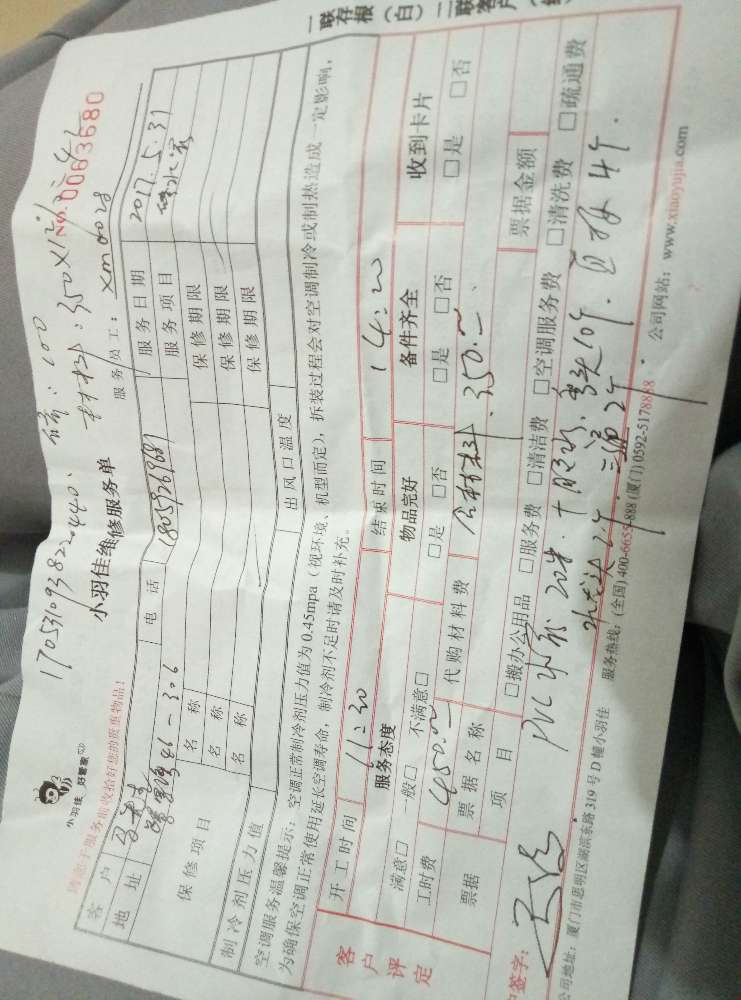 170531093822440.
小羽佳 好管家
小羽佳维修服务单
No.0063680
请您于服务前收拾好您的贵重物品!
服务员工: xm0028
客户
电话 18059269689
服务日期 2017.5.31
地址 46-306
服务项目
保修项目
名称
保修期限
名称
保修期限
名称
保修期限
制冷剂压力值
出风口温度
空调服务温馨提示: 空调正常制冷剂压力值为0.45mpa(视环境、机型而定),拆装过程会对空调制冷或制热造成一定影响,
为确保空调正常使用延长空调寿命,制冷剂不足时请及时补充。
客户评定
开工时间 11:30
结束时间 14:20
服务态度
物品完好
备件齐全
收到卡片
满意□ 一般□ 不满意□
□是 □否
□是 □否
□是 □否
工时费 450.00
代购材料费 材料: 350.00
票据
票据名称
票据金额
项目
□搬办公用品 □服务费 □清洁费 □空调服务费 □清洗费 □疏通费
PVC 20米. 10个. 4个.
2个. 2个.
签字:
公司地址: 厦门市思明区湖滨东路319号D幢小羽佳
服务热线: (全国)400-6655-888 (厦门)0592-5178888
公司网站: www.xiaoyujia.com
一联存根(白)二联客户